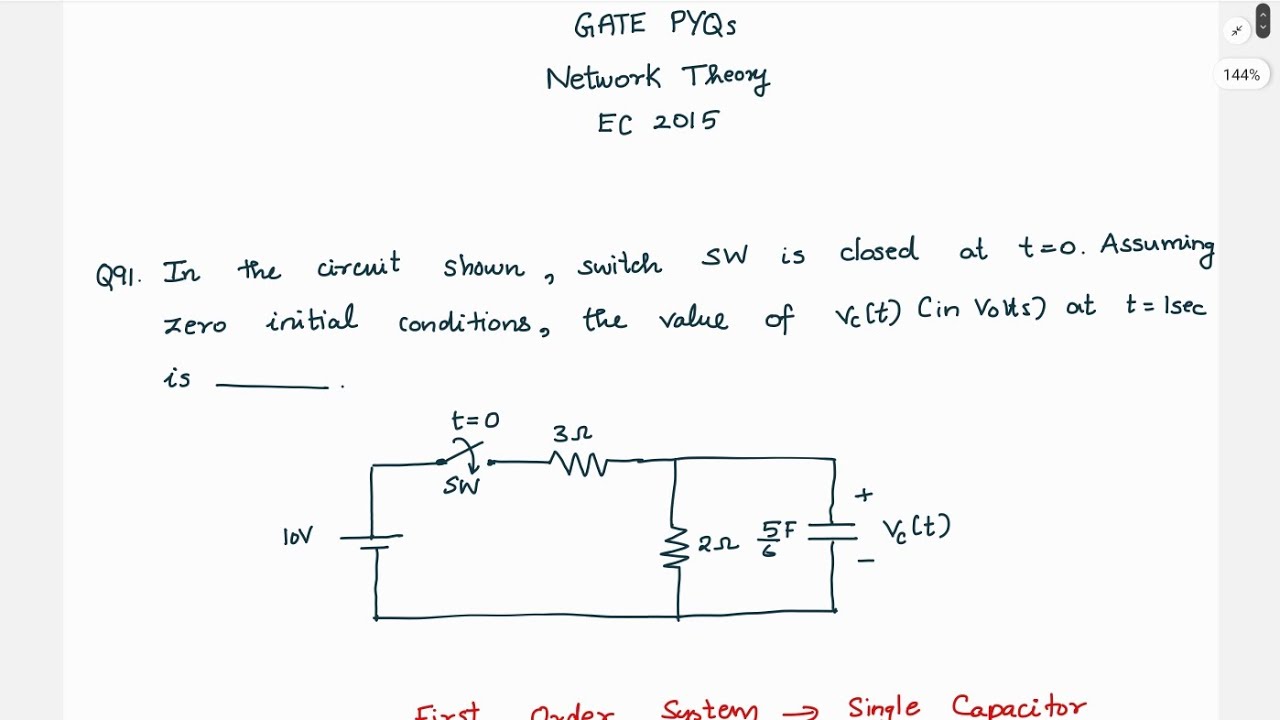 GATE PYQs
144%
Network Theory
EC 2015
Q91. In the circuit shown, switch SW is closed at t=0. Assuming
zero initial conditions, the value of Vc(t) (in Volts) at t=1sec
is ______.
t=0
3Ω
SW
+
10V
2Ω
5/6 F
Vc(t)
−
First Order System → Single Capacitor